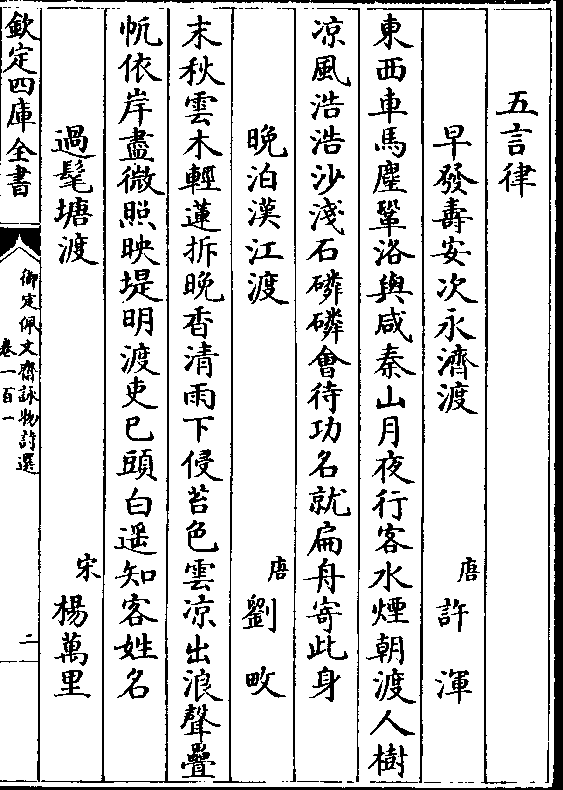 五言律
早發壽安次永濟渡 唐 許渾
東西車馬塵鞏洛與咸秦山月夜行客水煙朝渡人樹
凉風浩浩沙淺石磷磷會待功名就扁舟寄此身
晚泊漢江渡 唐 劉畋
末秋雲木輕蓮折晚香清雨下侵苔色雲凉出浪聲疊
帆依岸盡微照映堤明渡吏已頭白遥知客姓名
過髦塘渡 宋 楊萬里
欽定四庫全書
御定佩文齋詠物詩選
卷一百一
二